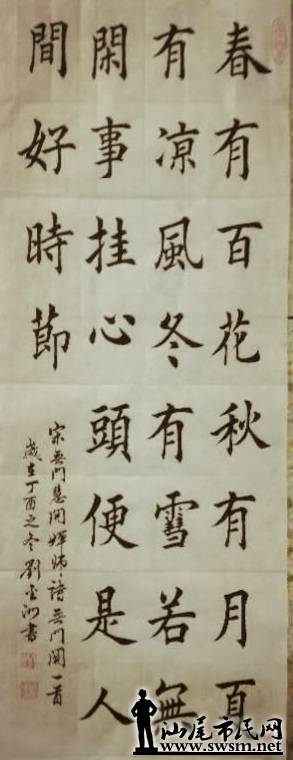 春有百花秋有月夏
有涼風冬有雪若無
閑事挂心頭便是人
間好時節
宋无门慧開禪師詩无门關一首
歲在丁酉之冬劉書
汕尾市民网
www.swsm.net